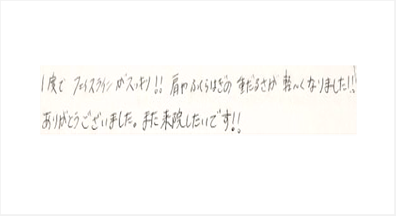 1度でフェイスラインがスッキリ!! 肩やふくらはぎの重だるさが軽〜くなりました!!
ありがとうございました。また来院したいです!!